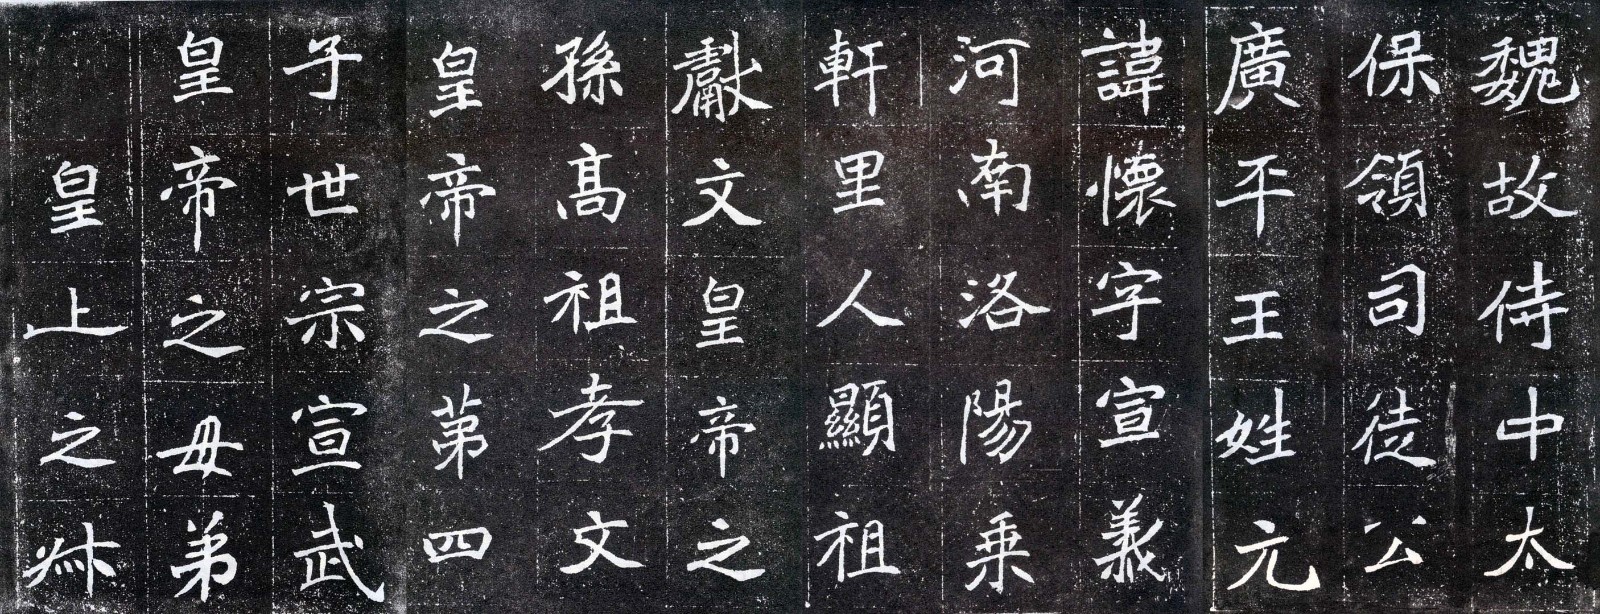 魏故侍中太
保領司徒公
廣平王姓元
諱懷字宣義
河南洛陽乗
軒里人顯祖
獻文皇帝之
孫高祖孝文
皇帝之苐四
子世宗宣武
皇帝之母弟
皇上之叔